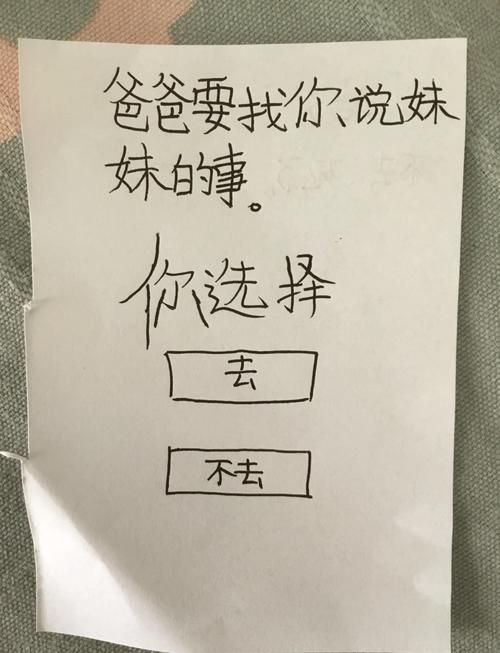 爸爸要找你说妹
妹的事。
你选择
去
不去